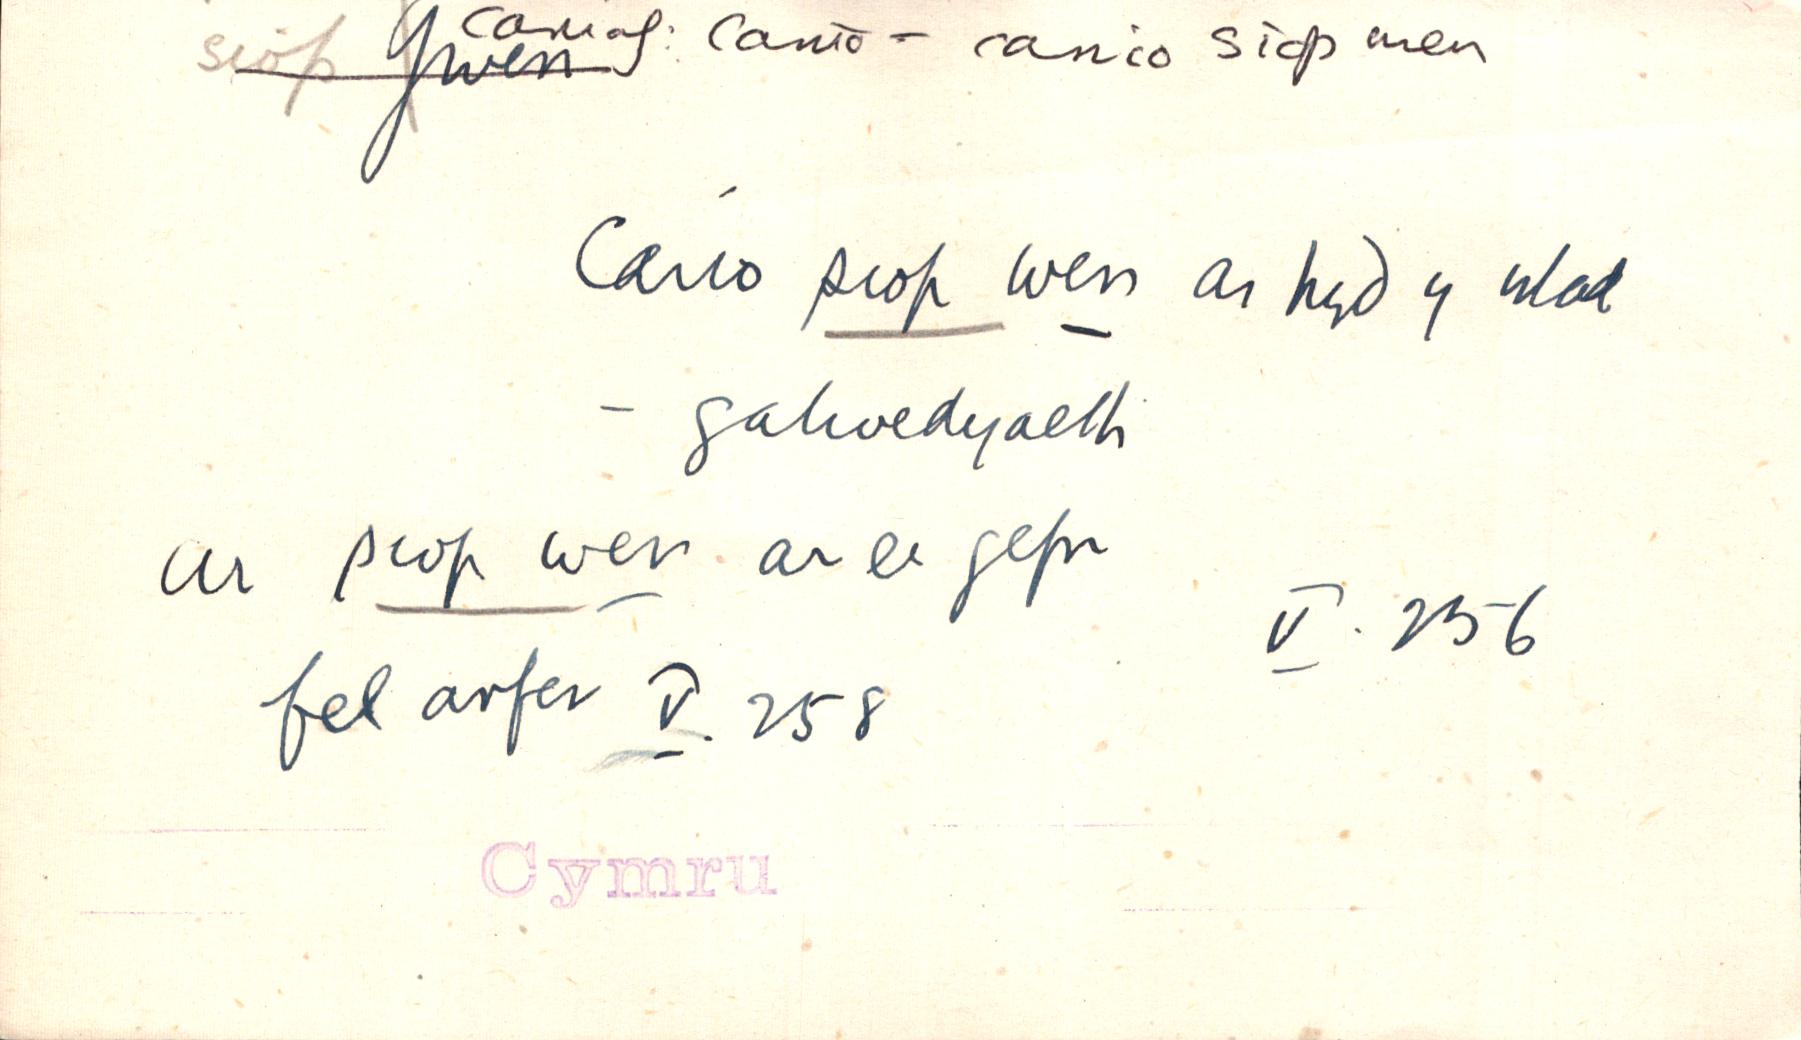 siop gwen cariaf: cario - cario siop wen
Cario siop wen ar hyd y wlad
- galwedyaeth
a'r siop wen ar ei gefn
V. 256
fel arfer V. 258
Cymru